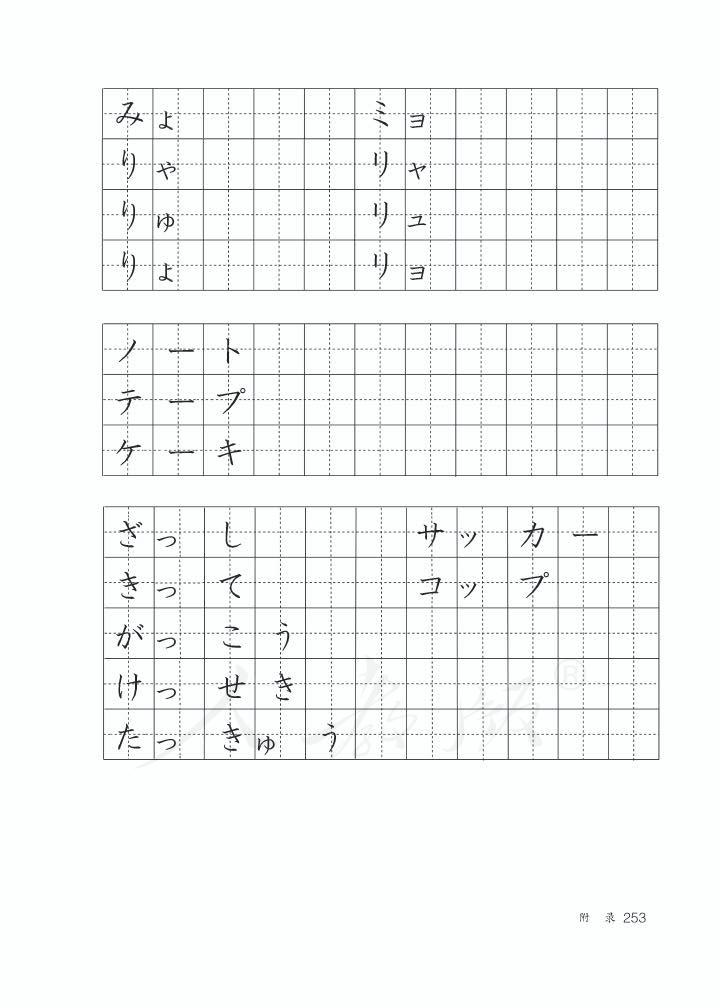 みょ ミョ
りゃ リャ
りゅ リュ
りょ リョ
ノート
テープ
ケーキ
ざっし サッカー
きって コップ
がっこう
けっせき
たっきゅう
人教版®
附 录 253